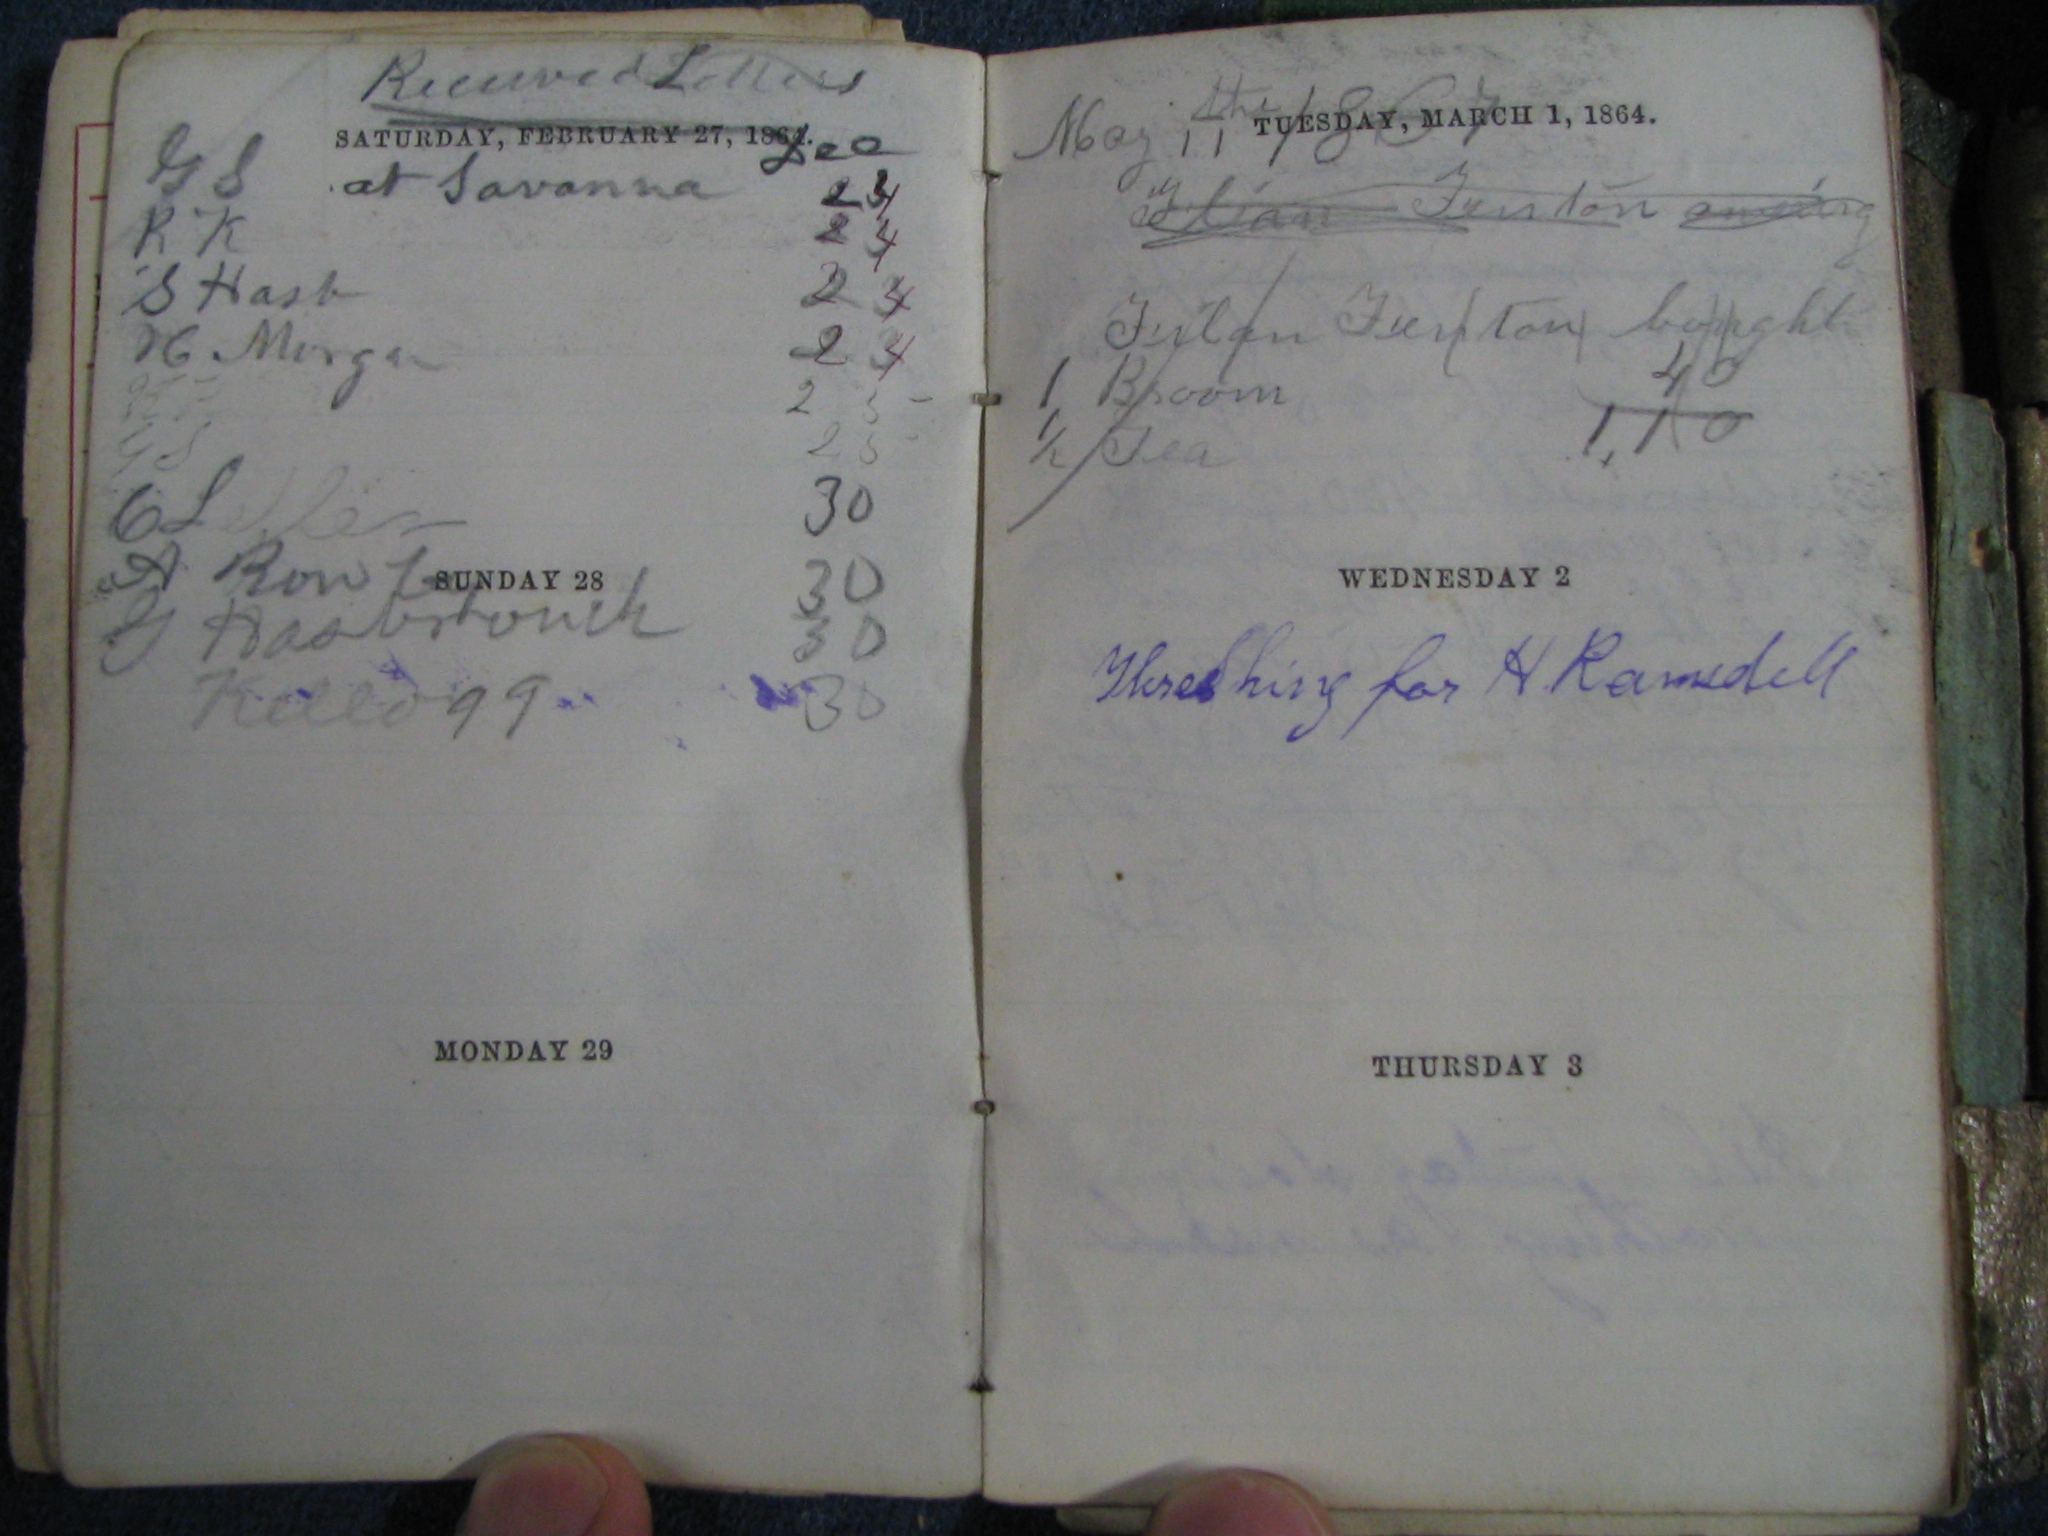 Received Letters
SATURDAY, FEBRUARY 27, 1864.
Dec
G S at Savanna 24
R K 24
S Hasb 24
H Morgan 24
2 3
G S 23
C L 30
A Row 30
SUNDAY 28
G Hasbrouck 30
Kellogg 30
MONDAY 29
May 11th 1867
TUESDAY, MARCH 1, 1864.
Furston
Julan Furston bought
1 Broom 40
1/2 Tea 1,10
WEDNESDAY 2
Threshing for H Ramsdell
THURSDAY 3